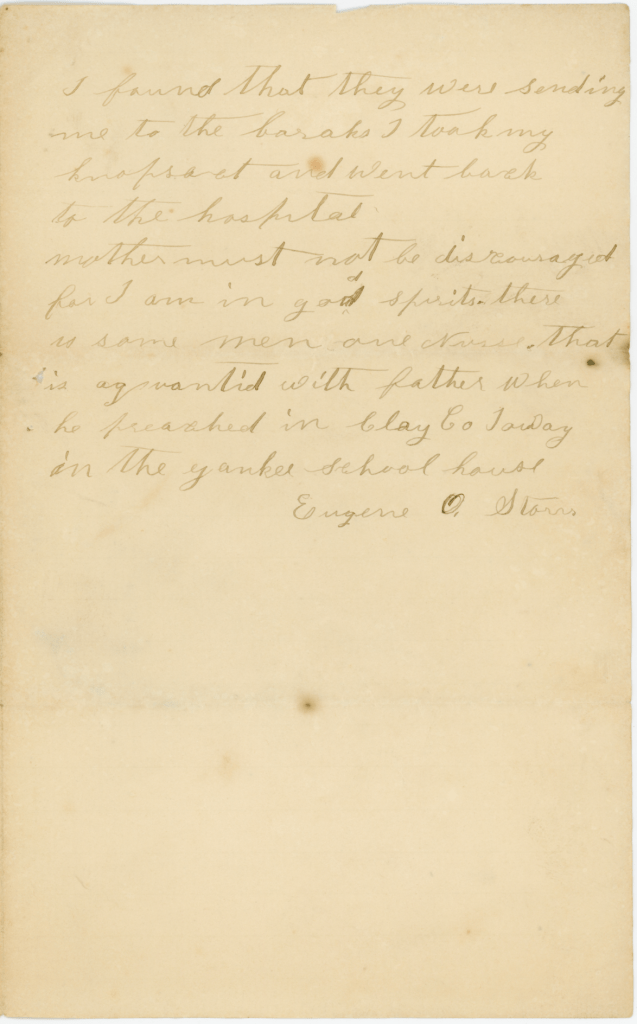 I found that they were sending
me to the baraks I took my
knapsact and went back
to the hospital
mother must not be discouraged
for I am in good spirits. there
is some men one Nurse. that
is aqvantid with father when
he preached in Clay Co Ioway
in the yankee school house
Eugene O. Storrs